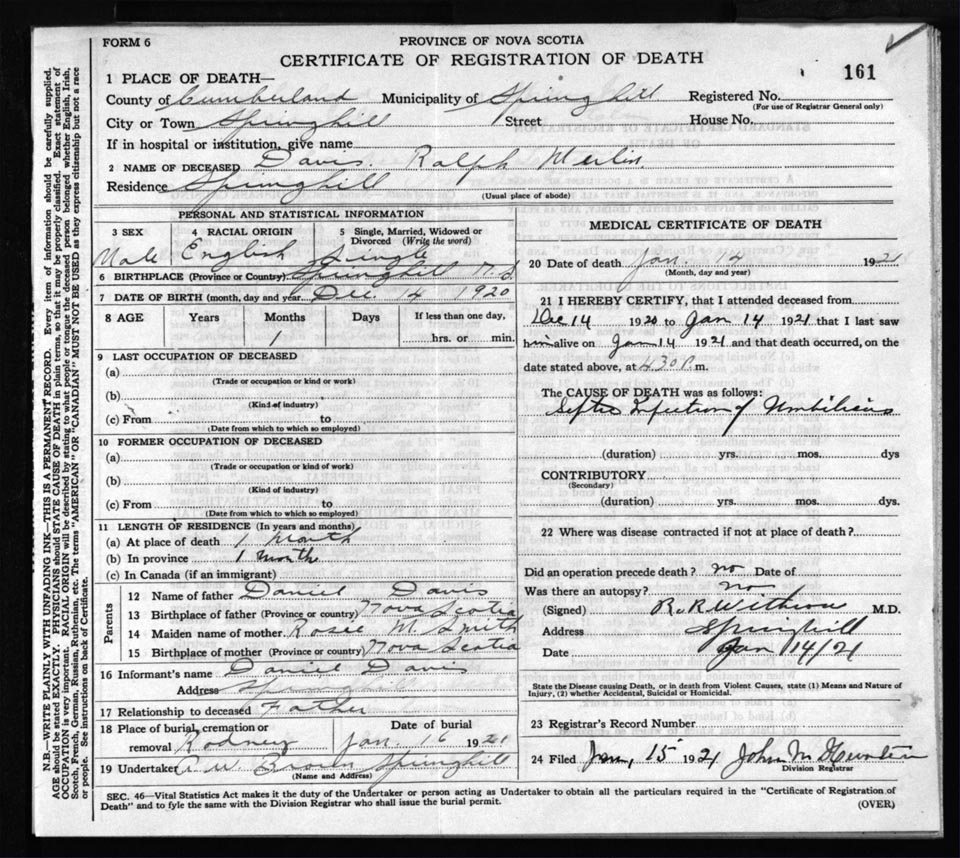 FORM 6
PROVINCE OF NOVA SCOTIA
CERTIFICATE OF REGISTRATION OF DEATH
161
1 PLACE OF DEATH—
County of Cumberland Municipality of Springhill Registered No.
(For use of Registrar General only)
City or Town Springhill Street House No.
If in hospital or institution, give name
2 NAME OF DECEASED Davis Ralph Merlin
Residence Springhill
(Usual place of abode)
PERSONAL AND STATISTICAL INFORMATION
3 SEX 4 RACIAL ORIGIN 5 Single, Married, Widowed or Divorced (Write the word)
Male English Single
6 BIRTHPLACE (Province or Country) Springhill N.S.
7 DATE OF BIRTH (month, day and year) Dec. 14 1920
8 AGE Years Months Days If less than one day,
1 hrs. or min.
9 LAST OCCUPATION OF DECEASED
(a)
(Trade or occupation or kind or work)
(b)
(Kind of industry)
(c) From to
(Date from which to which so employed)
10 FORMER OCCUPATION OF DECEASED
(a)
(Trade or occupation or kind of work)
(b)
(Kind of industry)
(c) From to
(Date from which to which so employed)
11 LENGTH OF RESIDENCE (In years and months)
(a) At place of death 1 Month
(b) In province 1 Month
(c) In Canada (if an immigrant)
Parents
12 Name of father Daniel Davis
13 Birthplace of father (Province or country) Nova Scotia
14 Maiden name of mother Rosie M. Smith
15 Birthplace of mother (Province or country) Nova Scotia
16 Informant's name Daniel Davis
Address Springhill
17 Relationship to deceased Father
18 Place of burial, cremation or removal Rodney Date of burial Jan. 16 1921
19 Undertaker A. W. Brown Springhill
(Name and Address)
MEDICAL CERTIFICATE OF DEATH
20 Date of death Jan. 14 1921
(Month, day and year)
21 I HEREBY CERTIFY, that I attended deceased from
Dec 14 1920 to Jan 14 1921 that I last saw
him alive on Jan 14 1921 and that death occurred, on the
date stated above, at 4 30 P.m.
The CAUSE OF DEATH was as follows:
Septic Infection of Umbilicus
(duration) yrs. mos. dys
CONTRIBUTORY
(Secondary)
(duration) yrs. mos. dys.
22 Where was disease contracted if not at place of death?
Did an operation precede death? no Date of
Was there an autopsy? no
(Signed) R. R. Withrow M.D.
Address Springhill
Date Jan 14/21
State the Disease causing Death, or in death from Violent Causes, state (1) Means and Nature of
Injury, (2) whether Accidental, Suicidal or Homicidal.
23 Registrar's Record Number
24 Filed Jan, 15 1921 John M
Division Registrar
SEC. 46—Vital Statistics Act makes it the duty of the Undertaker or person acting as Undertaker to obtain all the particulars required in the "Certificate of Registration of
Death" and to fyle the same with the Division Registrar who shall issue the burial permit.
(OVER)
N.B.—WRITE PLAINLY WITH UNFADING INK—THIS IS A PERMANENT RECORD. Every item of information should be carefully supplied.
AGE should be stated EXACTLY. PHYSICIANS should STATE CAUSE OF DEATH in plain terms, so that it may be properly classified. Exact statement of
OCCUPATION is very important. RACIAL ORIGIN will be described by stating to what people or tongue the deceased person belonged whether English, Irish,
Scotch, French, German, Russian, Ruthenian, etc. The terms "AMERICAN" OR "CANADIAN" MUST NOT BE USED as they express citizenship but not a race
or people. See instructions on back of Certificate.